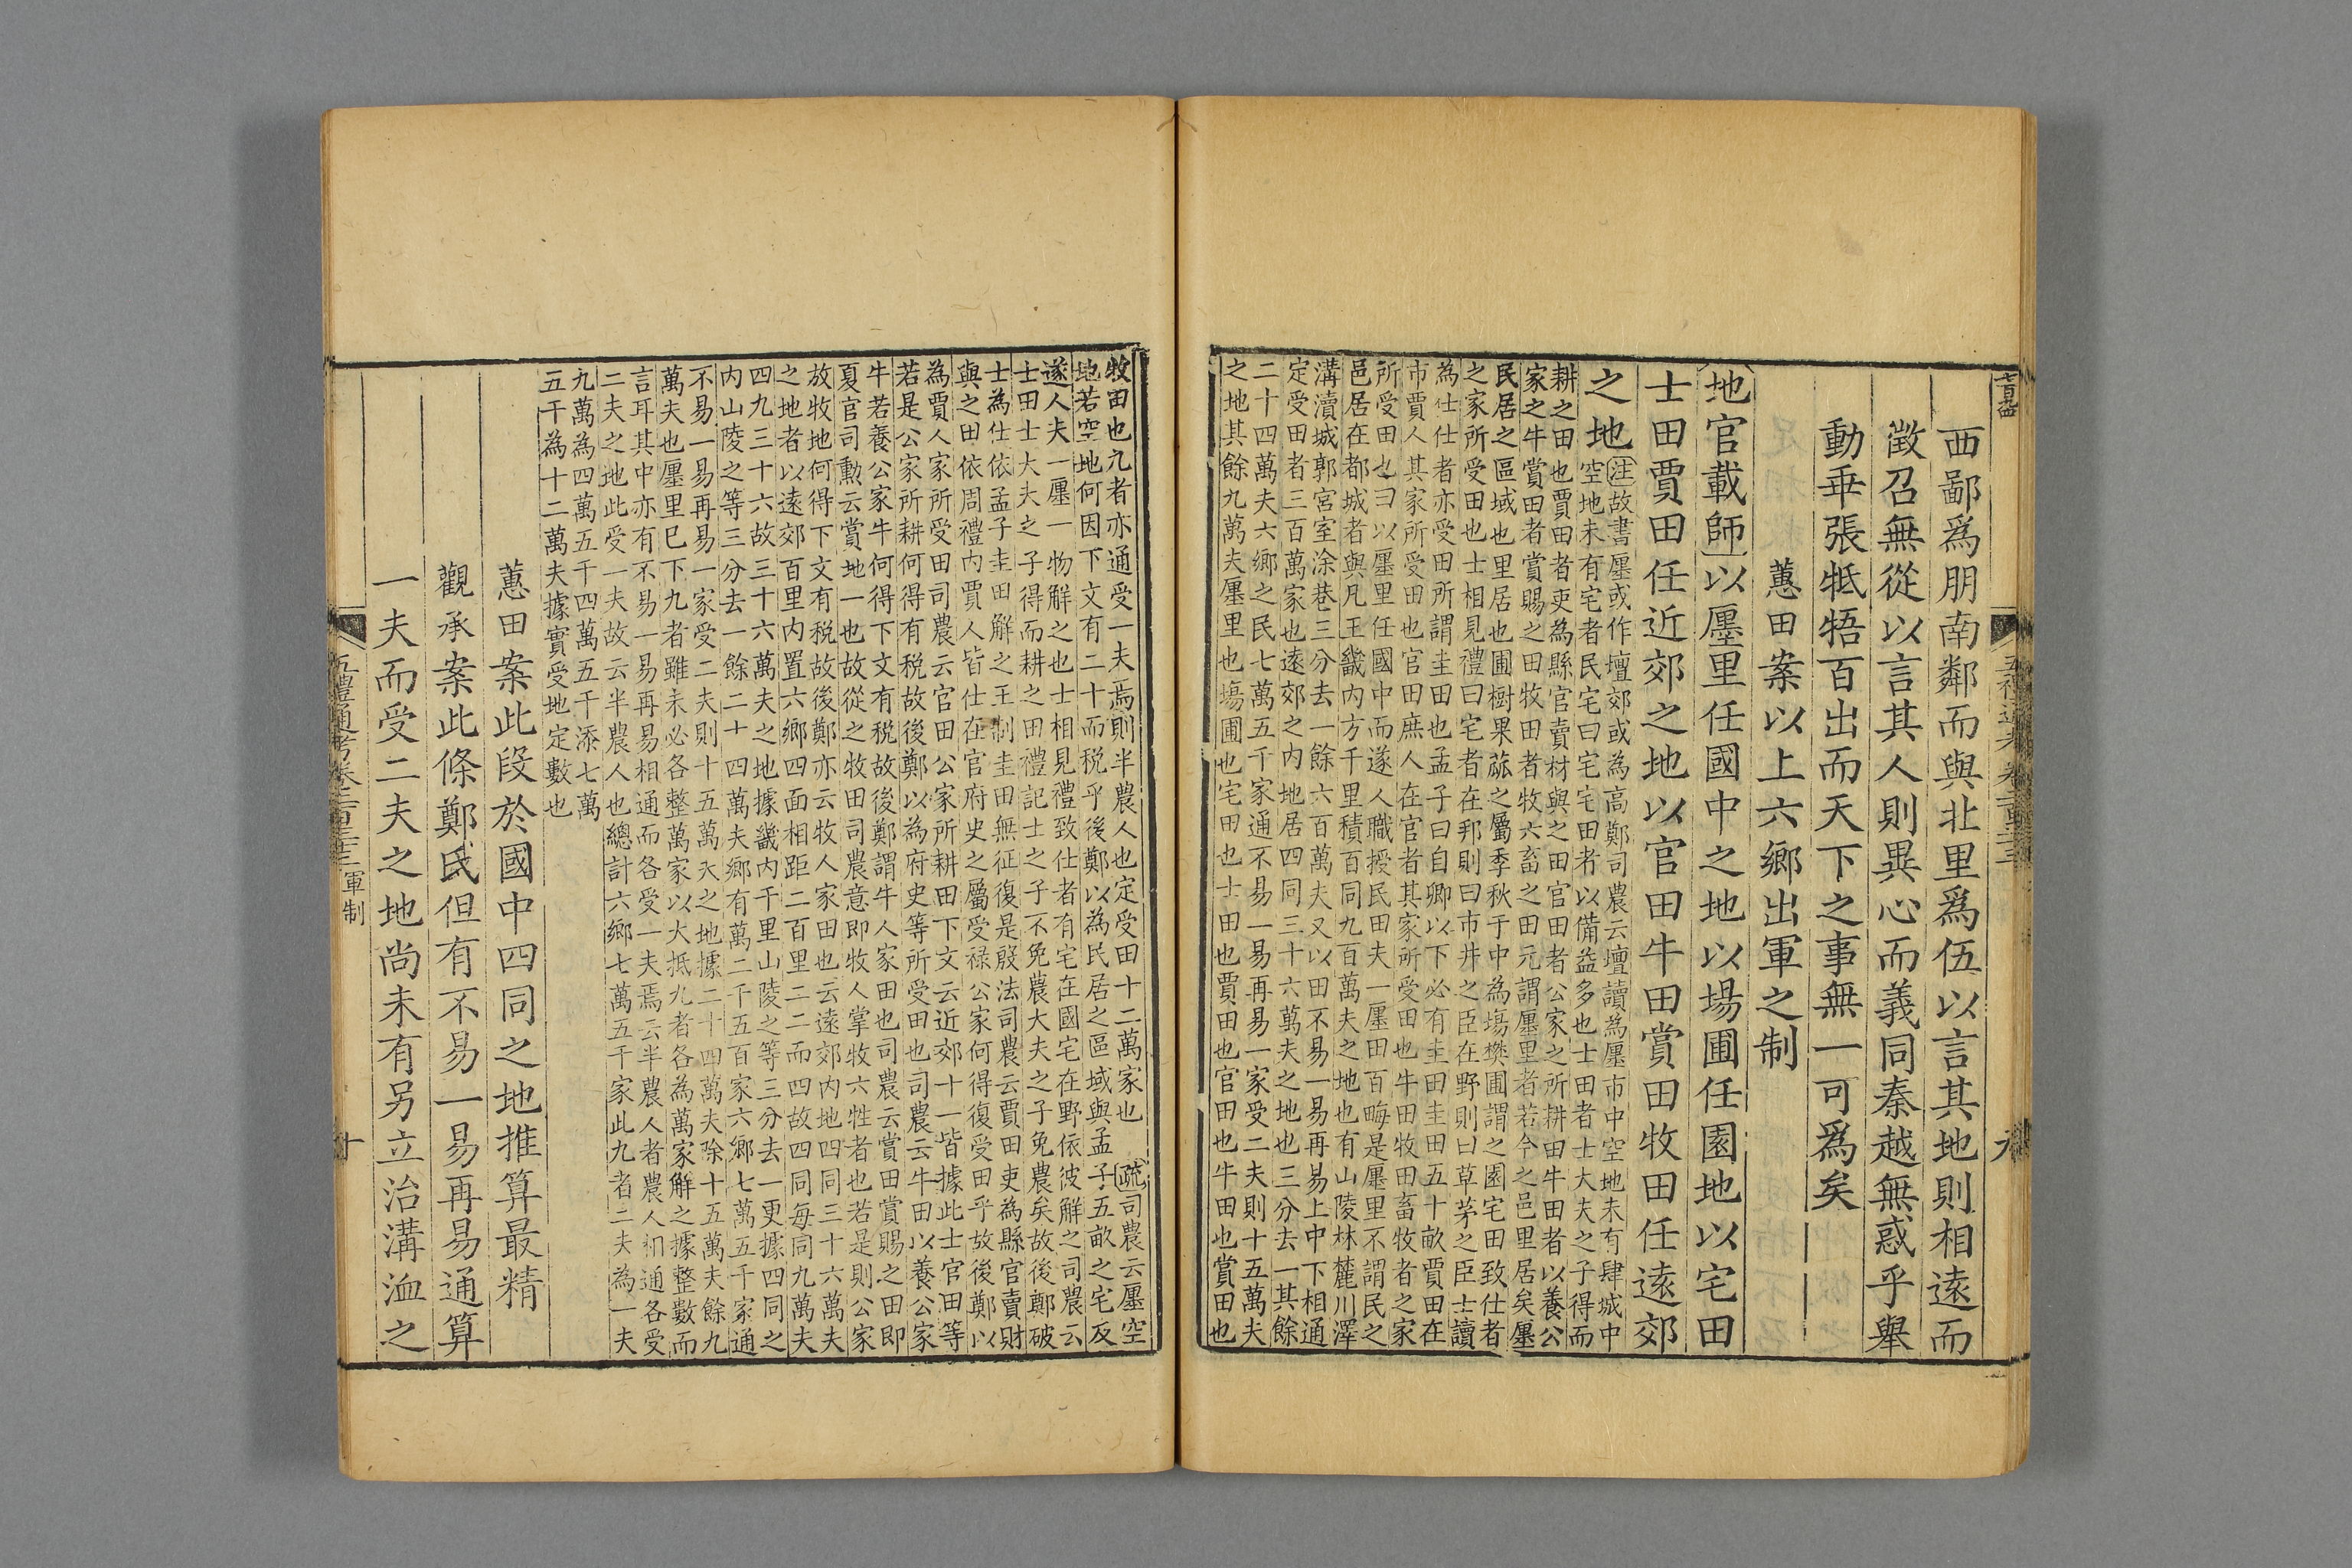 西鄙爲朋南鄰而與北里爲伍以言其地則相遠而
徵召無從以言其人則異心而義同秦越無惑乎舉
動乖張牴牾百出而天下之事無一可爲矣
蕙田案以上六鄉出軍之制
地官載師以廛里任國中之地以場圃任園地以宅田
士田賈田任近郊之地以官田牛田賞田牧田任遠郊
之地
注故書廛或作壇郊或為高鄭司農云壇讀為廛市中空地未有肆城中
空地未有宅者民宅曰宅宅田者以備益多也士田者士大夫之子得而
耕之田也賈田者吏為縣官賣材與之田官田者公家之所耕田牛田者以養公
家之牛賞田者賞賜之田牧田者牧六畜之田元謂廛里者若今之邑里居矣廛
民居之區域也里居也圃樹果蓏之屬季秋于中為場樊圃謂之園宅田致仕者
之家所受田也士相見禮曰宅者在邦則曰市井之臣在野則曰草茅之臣士讀
為仕仕者亦受田所謂圭田也孟子曰自卿以下必有圭田圭田五十畝賈田在
市賈人其家所受田也官田庶人在官者其家所受田也牛田牧田畜牧者之家
所受田也曰以廛里任國中而遂人職授民田夫一廛田百畮是廛里不謂民之
邑居在都城者與凡王畿內方千里積百同九百萬夫之地也有山陵林麓川澤
溝瀆城郭宮室涂巷三分去一餘六百萬夫又以田不易一易再易上中下相通
定受田者三百萬家也遠郊之內地居四同三十六萬夫之地也三分去一其餘
二十四萬夫六鄉之民七萬五千家通不易一易再易一家受二夫則十五萬夫
之地其餘九萬夫廛里也塲圃也宅田也士田也賈田也官田也牛田也賞田也
牧田也九者亦通受一夫焉則半農人也定受田十二萬家也 疏司農云廛空
地若空地何因下文有二十而税乎後鄭以為民居之區域與孟子五畝之宅及
遂人夫一廛一物解之也士相見禮致仕者有宅在國宅在野依彼解之司農云
士田士大夫之子得而耕之田禮記士之子不免農大夫之子免農矣故後鄭破
士為仕依孟子圭田解之王制圭田無征復是殷法司農云賈田吏為縣官賣財
與之田依周禮內賈人皆仕在官府史之屬受祿公家何得復受田乎故後鄭以
為賈人家所受田司農云官田公家所耕田下文云近郊十一皆據此士官田等
若是公家所耕何得有税故後鄭以為府史等所受田也司農云牛田以養公家
牛若養公家牛何得下文有税故後鄭謂牛人家田也司農云賞田賞賜之田即
夏官司勳云賞地一也故從之牧田司農意即牧人掌牧六牲者也若是則公家
放牧地何得下文有税故後鄭亦云牧人家田也云遠郊內地四同三十六萬夫
之地者以遠郊百里內置六鄉四面相距二百里二二而四故四同每同九萬夫
四九三十六故三十六萬夫之地據畿內千里山陵之等三分去一更據四同之
內山陵之等三分去一餘二十四萬夫鄉有萬二千五百家六鄉七萬五千家通
不易一易再易一家受二夫則十五萬夫之地據二十四萬夫除十五萬夫餘九
萬夫也廛里已下九者雖未必各整萬家以大抵九者各為萬家解之據整數而
言耳其中亦有不易一易再易相通而各受一夫焉云半農人者農人相通各受
二夫之地此受一夫故云半農人也總計六鄉七萬五千家此九者二夫為一夫
九萬為四萬五千四萬五千添七萬
五千為十二萬夫據實受地定數也
蕙田案此段於國中四同之地推算最精
觀承案此條鄭氏但有不易一易再易通算
一夫而受二夫之地尚未有另立治溝洫之
五禮通考卷二百三十三 軍制
十